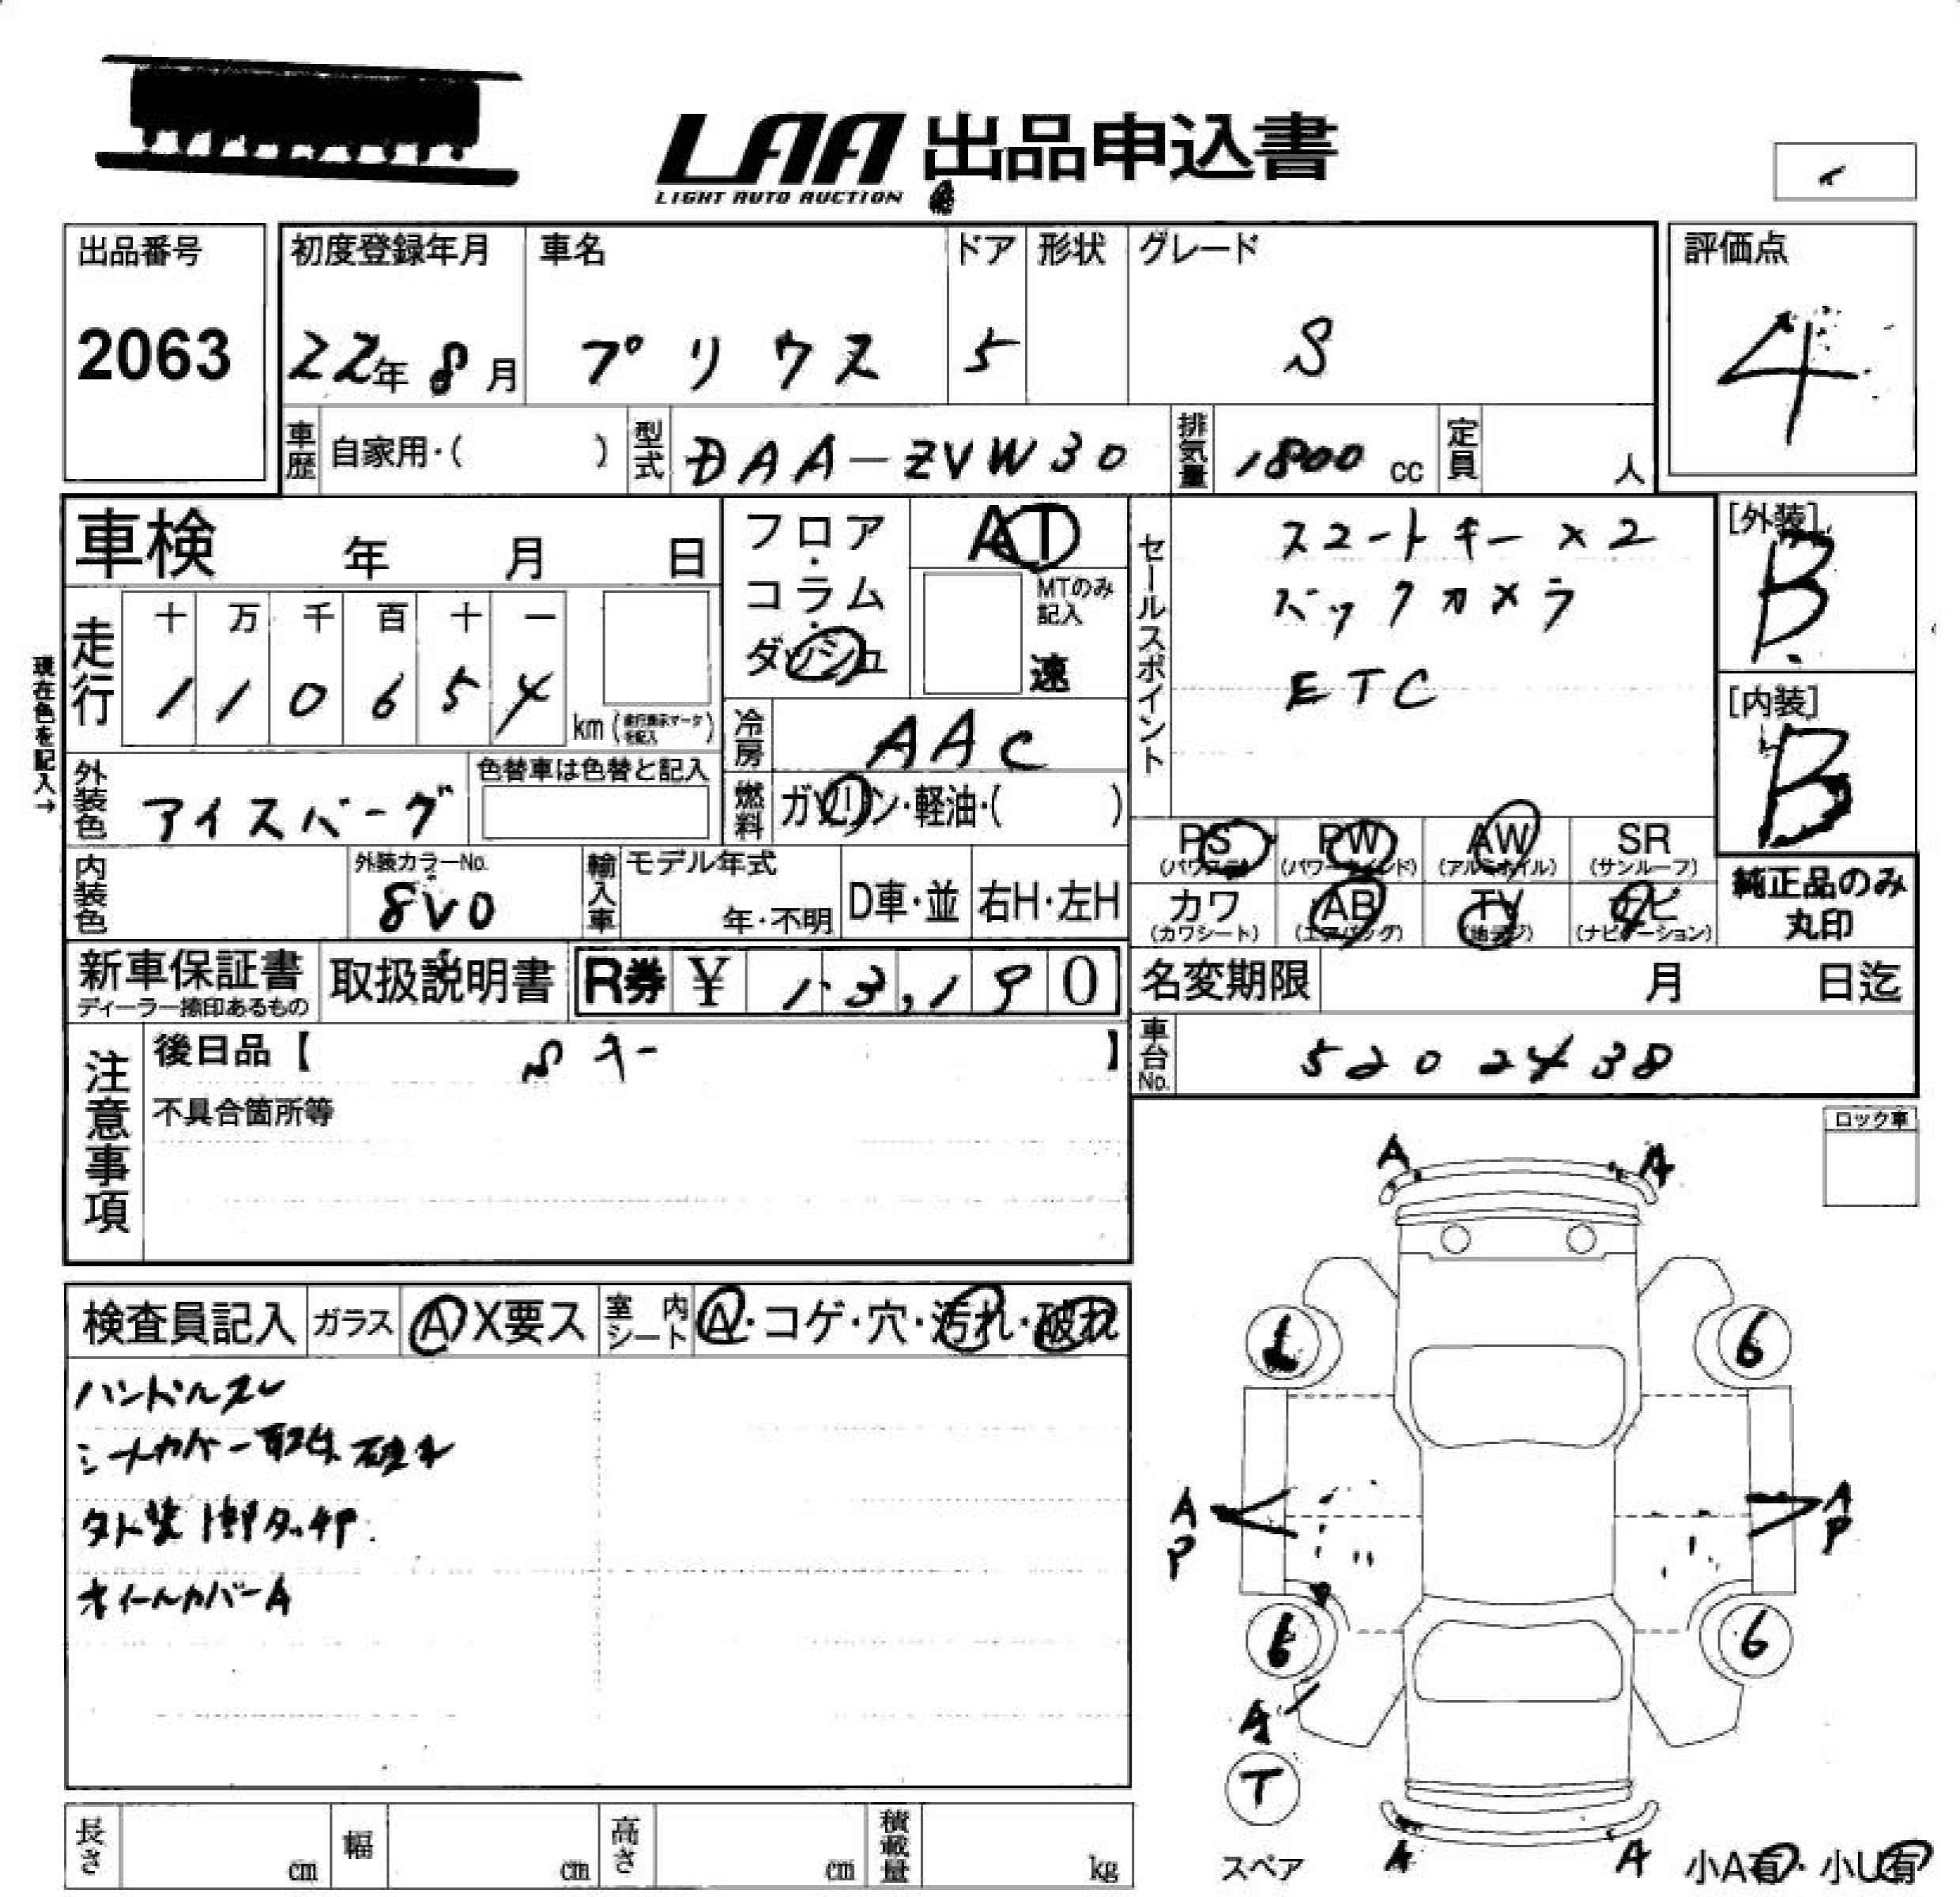 LAA 出品申込書
LIGHT AUTO AUCTION
出品番号
2063
初度登録年月
22年 8月
車名
プリウス
ドア
5
形状
グレード
S
評価点
4
車歴 自家用・( )
型式 DAA-ZVW30
排気量 1800 cc
定員 人
車検 年 月 日
フロア・コラム・ダッシュ
AT
MTのみ記入
速
走行 十 万 千 百 十 一
1 1 0 6 5 4 km
現在色を記入→
冷房 AAC
燃料 ガソリン・軽油・( )
外装色 アイスバーグ
色替車は色替と記入
内装色
外装カラーNo.
8V0
輸入車 モデル年式
年・不明
D車・並
右H・左H
セールスポイント
スマートキー×2
バックカメラ
ETC
[外装]
B
[内装]
B
PS (パワステ)
PW (パワーウインド)
AW (アルミホイル)
SR (サンルーフ)
カワ (カワシート)
AB (エアバッグ)
TV (地デジ)
ナビ (ナビゲーション)
純正品のみ
丸印
新車保証書
ディーラー捺印あるもの
取扱説明書
R券 ¥ 13,190
名変期限 月 日迄
車台No. 5202438
注意事項
後日品【 Sキー 】
不具合箇所等
ロック車
検査員記入
ガラス A X要ス
室内シート A・コゲ・穴・汚れ・破れ
ハンドルスレ
シートカバー取付 破れ
外装 1部タッチP
ホイールカバーA
A A
6
A P
A P
6
A
T
スペア
A A
小A有・小U有
長さ cm
幅 cm
高さ cm
積載量 kg